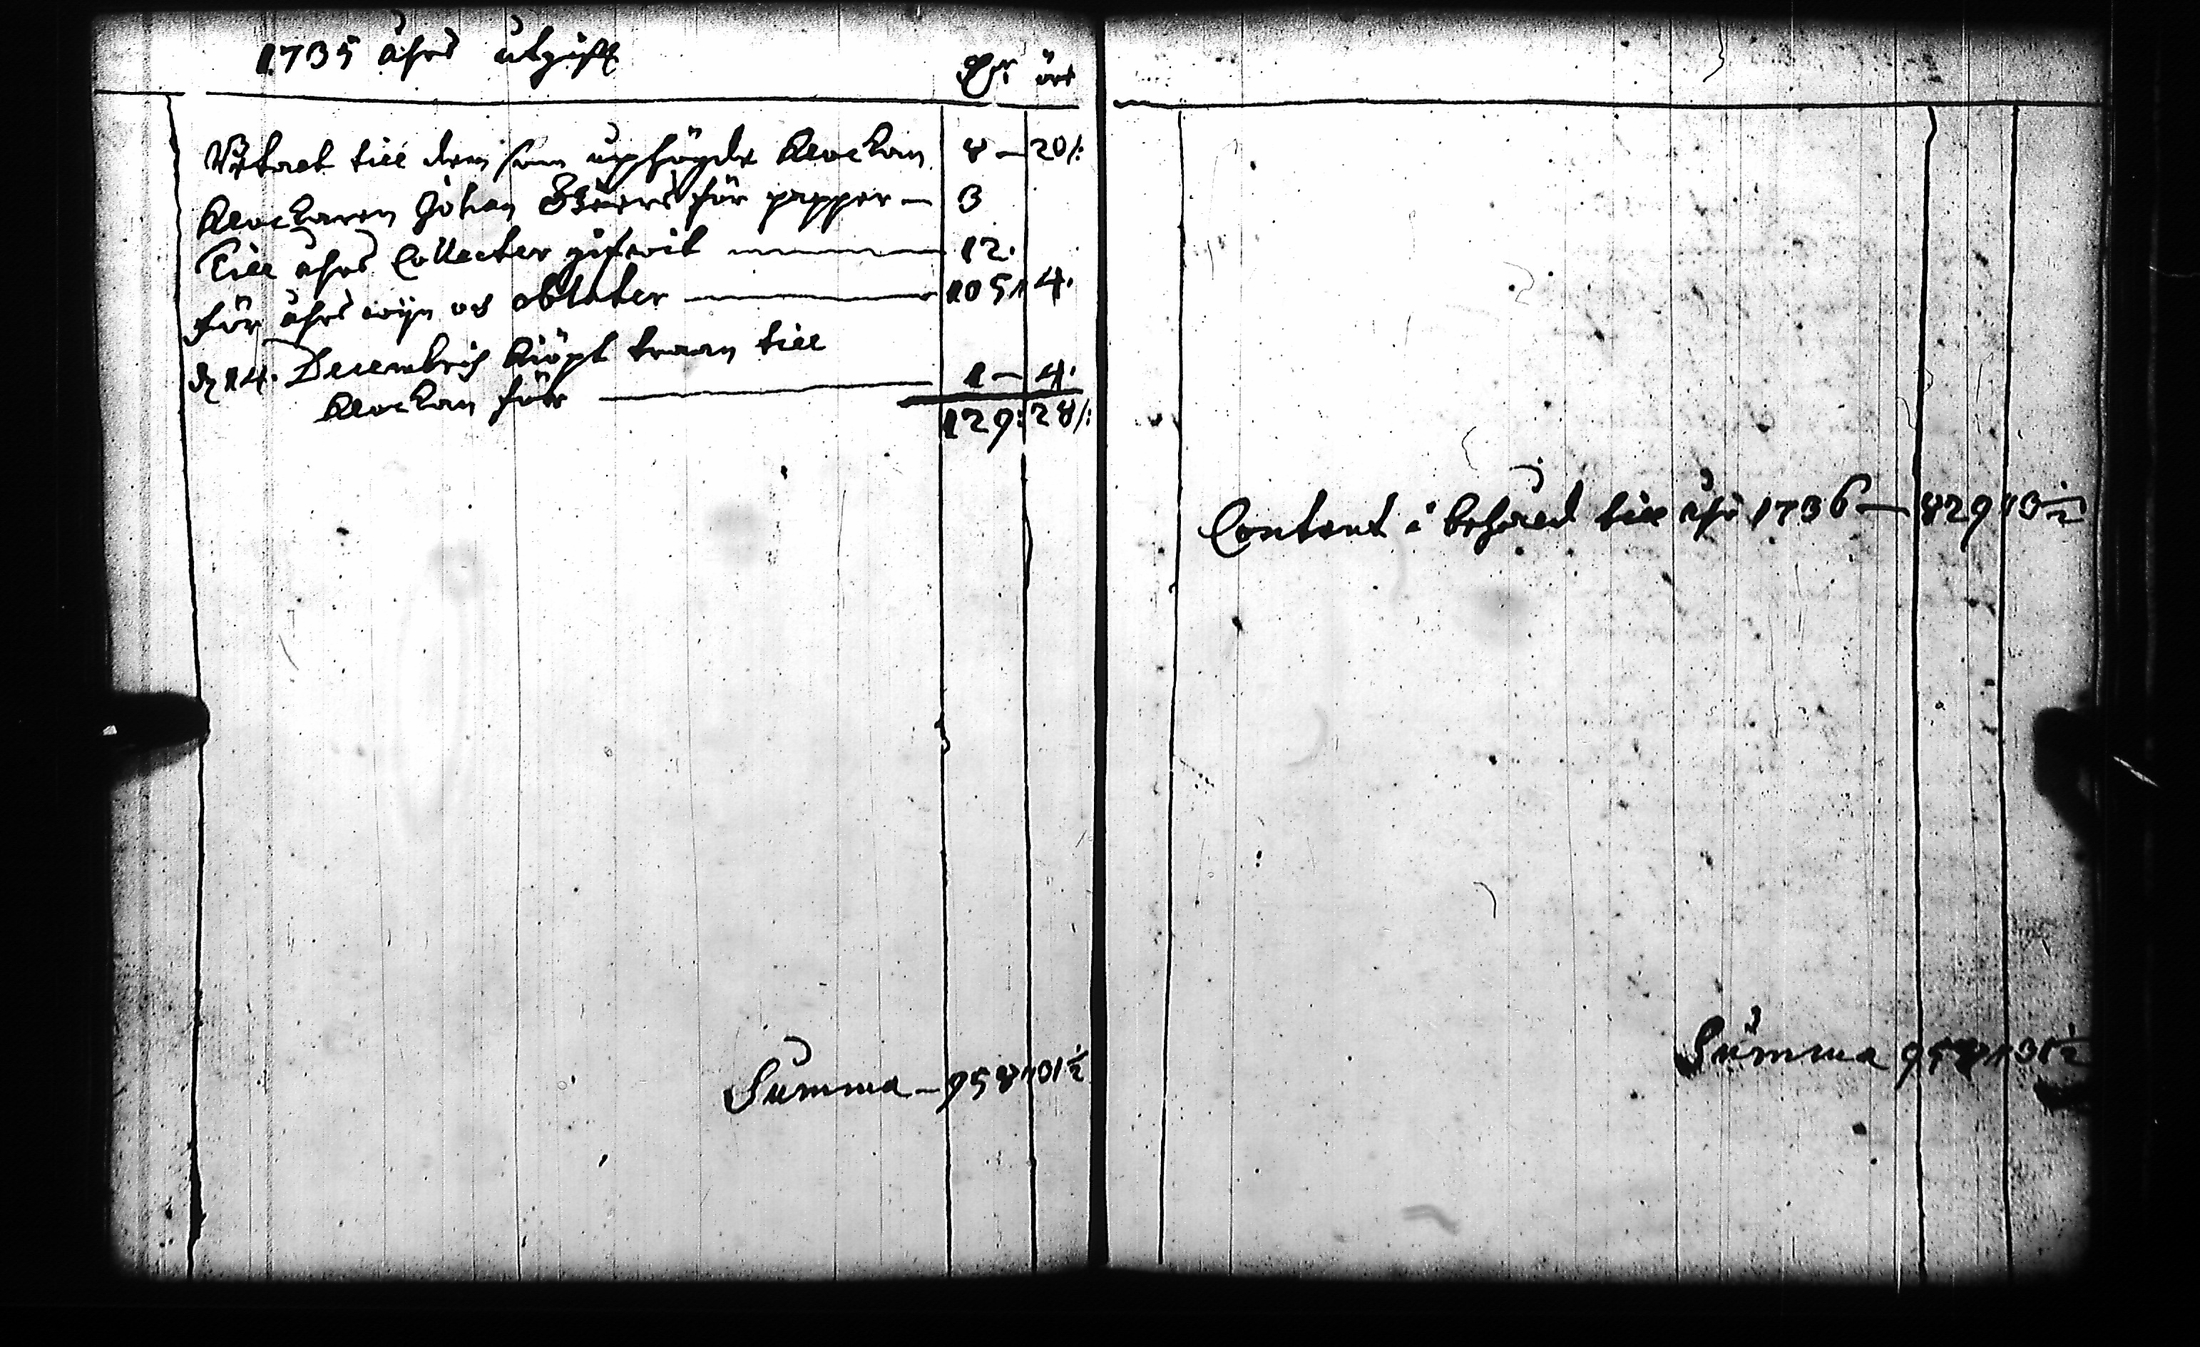 1735 åhrs utgift
Dr öre
Betalt till dem som uphögde klockan 8 — 20/:
klockaren Johan för papper — 3
Till åhrs Collecter gifwit 12.
för åhrs wijn och oblater 105 4.
d 14. Decembris kiöpt traan till
klockan för 1 — 4.
129: 28/:
Summa — 958 31½
Contant i behåld till åhr 1736 — 829 3½
Summa 958 31½